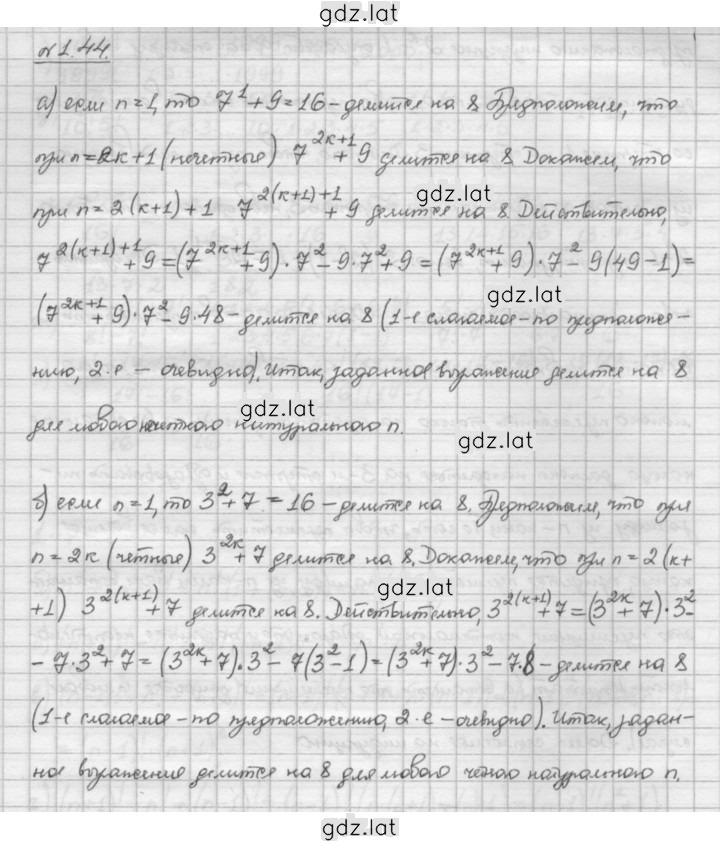 gdz.lat
№1.44.
а) если n=1, то 7^1+9=16 – делится на 8. Предположим, что
при n=2к+1 (нечетные) 7^{2к+1}+9 делится на 8. Докажем, что
gdz.lat
при n=2(к+1)+1 7^{2(к+1)+1}+9 делится на 8. Действительно,
7^{2(к+1)+1}+9=(7^{2к+1}+9)·7^2–9·7^2+9=(7^{2к+1}+9)·7^2–9(49–1)=
gdz.lat
(7^{2к+1}+9)·7^2–9·48 – делится на 8 (1-е слагаемое – по предположе-
нию, 2-е – очевидно). Итак, заданное выражение делится на 8
gdz.lat
для любого нечетного натурального n.
gdz.lat
б) если n=1, то 3^2+7=16 – делится на 8. Предположим, что при
n=2к (четные) 3^{2к}+7 делится на 8. Докажем, что при n=2(к+
gdz.lat
+1) 3^{2(к+1)}+7 делится на 8. Действительно, 3^{2(к+1)}+7=(3^{2к}+7)·3^2–
–7·3^2+7=(3^{2к}+7)·3^2–7(3^2–1)=(3^{2к}+7)·3^2–7·8 – делится на 8
gdz.lat
(1-е слагаемое – по предположению, 2-е – очевидно). Итак, задан-
ное выражение делится на 8 для любого четного натурального n.
gdz.lat